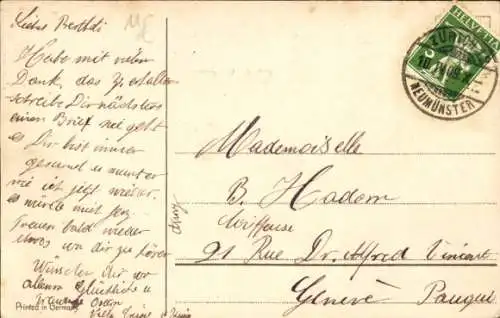 Liebes Berthli
Habe mit vielen
Dank das P. erhalten
schreibe Dir nächstens
einen Brief wie geht
es Dir bist immer
gesund u. munter
wie ich jetzt wieder.
es würde mich sehr
freuen bald wieder
etwas von dir zu hören
Wünsche dir vor
allem Glückliche u.
Ostern
Viele Grüsse
Mademoiselle
B. Hadorn
91 Rue Dr. Alfred Vincent
Genève Paquis
HELVETIA
5
ZÜRICH
NEUMÜNSTER
Printed in Germany